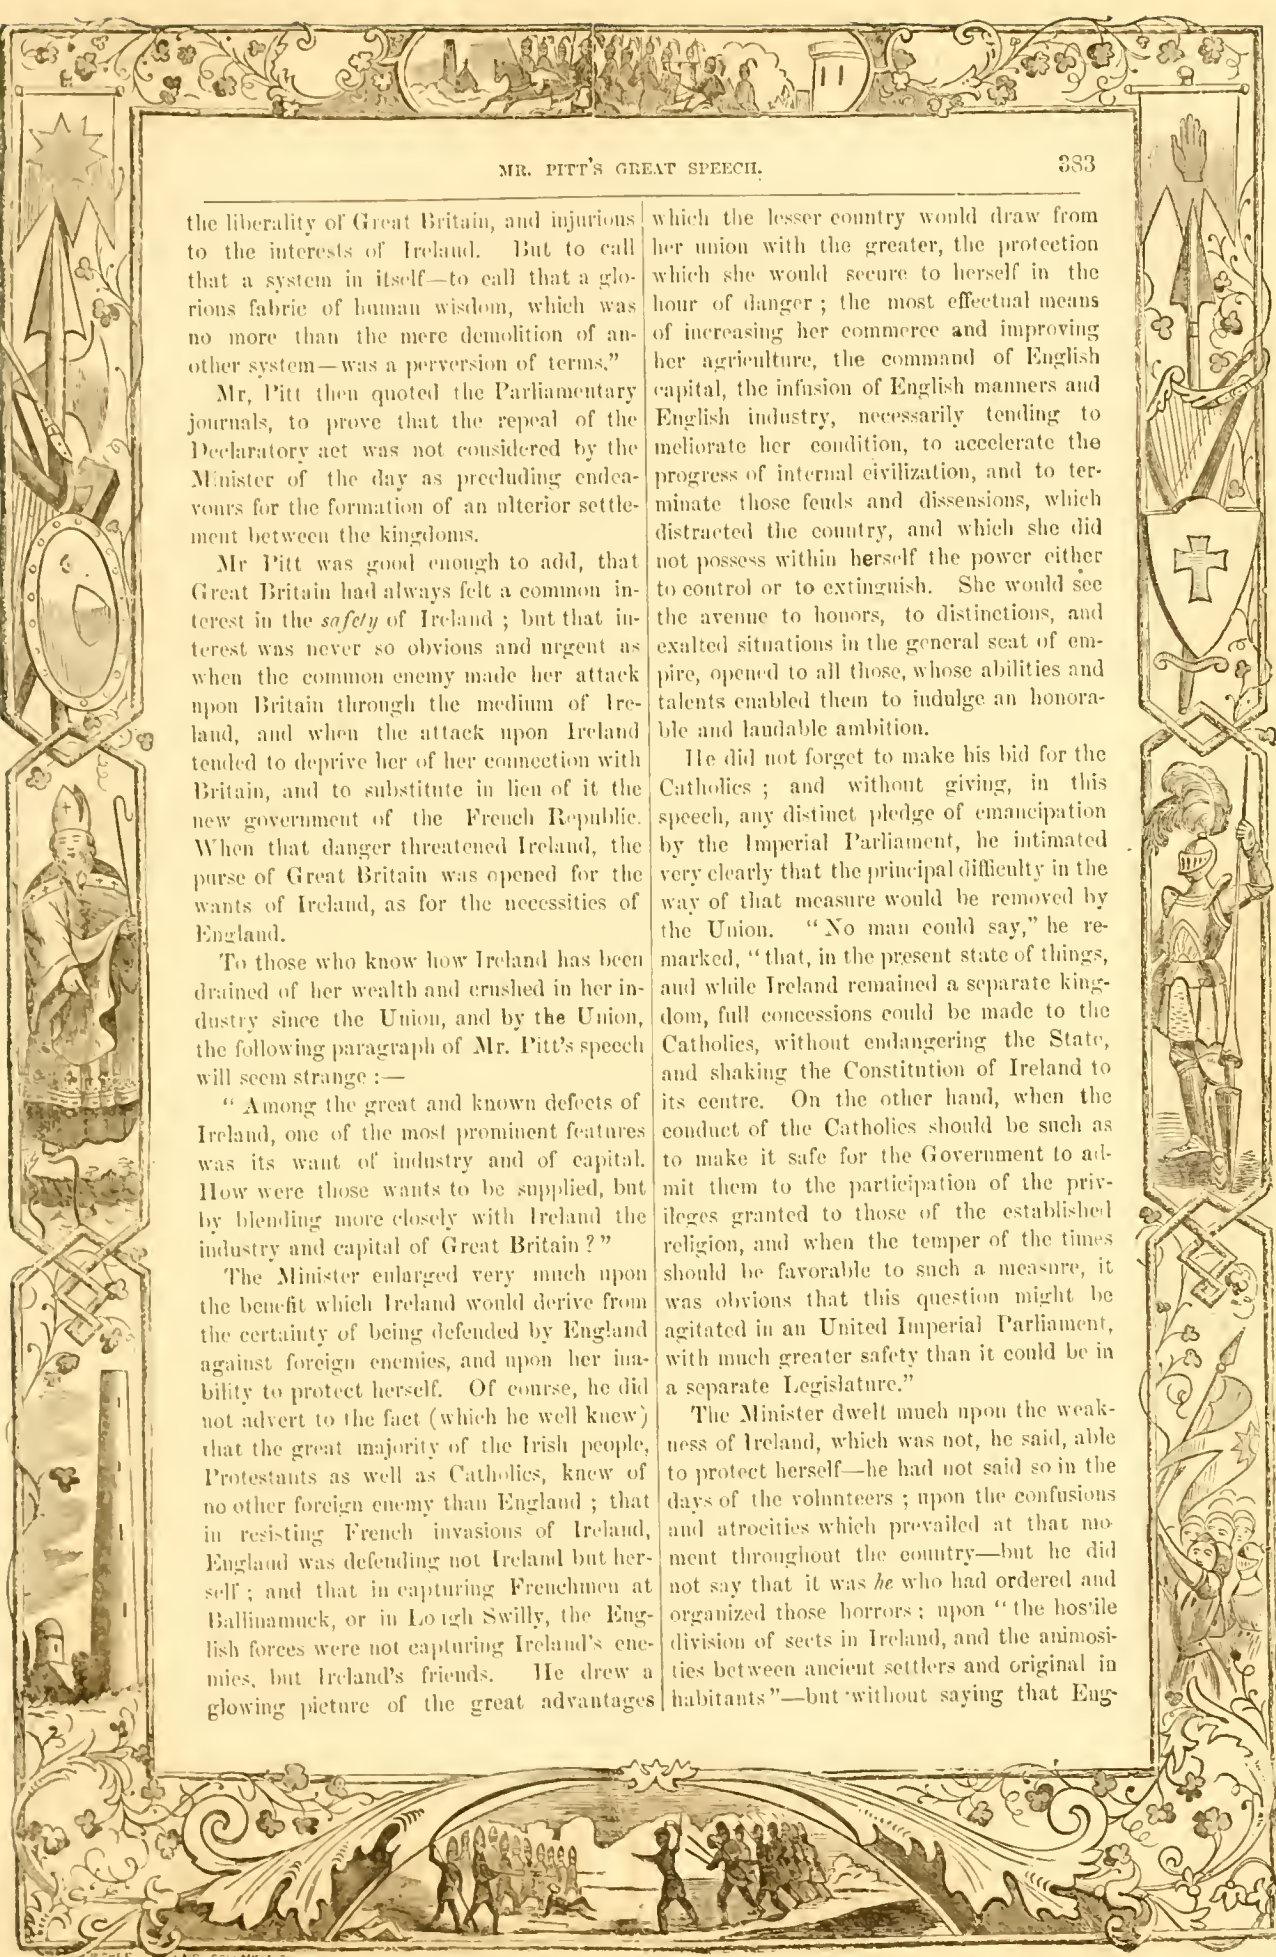 MR. PITT'S GREAT SPEECH.
383
the liberality of Great Britain, and injurious
to the interests of Ireland. But to call
that a system in itself—to call that a glo-
rious fabric of human wisdom, which was
no more than the mere demolition of an-
other system—was a perversion of terms."
Mr, Pitt then quoted the Parliamentary
journals, to prove that the repeal of the
Declaratory act was not considered by the
Minister of the day as precluding endea-
vours for the formation of an ulterior settle-
ment between the kingdoms.
Mr Pitt was good enough to add, that
Great Britain had always felt a common in-
terest in the safety of Ireland ; but that in-
terest was never so obvious and urgent as
when the common enemy made her attack
upon Britain through the medium of Ire-
land, and when the attack upon Ireland
tended to deprive her of her connection with
Britain, and to substitute in lieu of it the
new government of the French Republic.
When that danger threatened Ireland, the
purse of Great Britain was opened for the
wants of Ireland, as for the necessities of
England.
To those who know how Ireland has been
drained of her wealth and crushed in her in-
dustry since the Union, and by the Union,
the following paragraph of Mr. Pitt's speech
will seem strange :—
" Among the great and known defects of
Ireland, one of the most prominent features
was its want of industry and of capital.
How were those wants to be supplied, but
by blending more closely with Ireland the
industry and capital of Great Britain ? "
The Minister enlarged very much upon
the benefit which Ireland would derive from
the certainty of being defended by England
against foreign enemies, and upon her ina-
bility to protect herself. Of course, he did
not advert to the fact (which he well knew)
that the great majority of the Irish people,
Protestants as well as Catholics, knew of
no other foreign enemy than England ; that
in resisting French invasions of Ireland,
England was defending not Ireland but her-
self ; and that in capturing Frenchmen at
Ballinamuck, or in Lough Swilly, the Eng-
lish forces were not capturing Ireland's ene-
mies, but Ireland's friends. He drew a
glowing picture of the great advantages
which the lesser country would draw from
her union with the greater, the protection
which she would secure to herself in the
hour of danger ; the most effectual means
of increasing her commerce and improving
her agriculture, the command of English
capital, the infusion of English manners and
English industry, necessarily tending to
meliorate her condition, to accelerate the
progress of internal civilization, and to ter-
minate those feuds and dissensions, which
distracted the country, and which she did
not possess within herself the power either
to control or to extinguish. She would see
the avenue to honors, to distinctions, and
exalted situations in the general seat of em-
pire, opened to all those, whose abilities and
talents enabled them to indulge an honora-
ble and laudable ambition.
He did not forget to make his bid for the
Catholics ; and without giving, in this
speech, any distinct pledge of emancipation
by the Imperial Parliament, he intimated
very clearly that the principal difficulty in the
way of that measure would be removed by
the Union. "No man could say," he re-
marked, "that, in the present state of things,
and while Ireland remained a separate king-
dom, full concessions could be made to the
Catholics, without endangering the State,
and shaking the Constitution of Ireland to
its centre. On the other hand, when the
conduct of the Catholics should be such as
to make it safe for the Government to ad-
mit them to the participation of the priv-
ileges granted to those of the established
religion, and when the temper of the times
should be favorable to such a measure, it
was obvious that this question might be
agitated in an United Imperial Parliament,
with much greater safety than it could be in
a separate Legislature."
The Minister dwelt much upon the weak-
ness of Ireland, which was not, he said, able
to protect herself—he had not said so in the
days of the volunteers ; upon the confusions
and atrocities which prevailed at that mo-
ment throughout the country—but he did
not say that it was he who had ordered and
organized those horrors ; upon "the hostile
division of sects in Ireland, and the animosi-
ties between ancient settlers and original in
habitants"—but without saying that Eng-